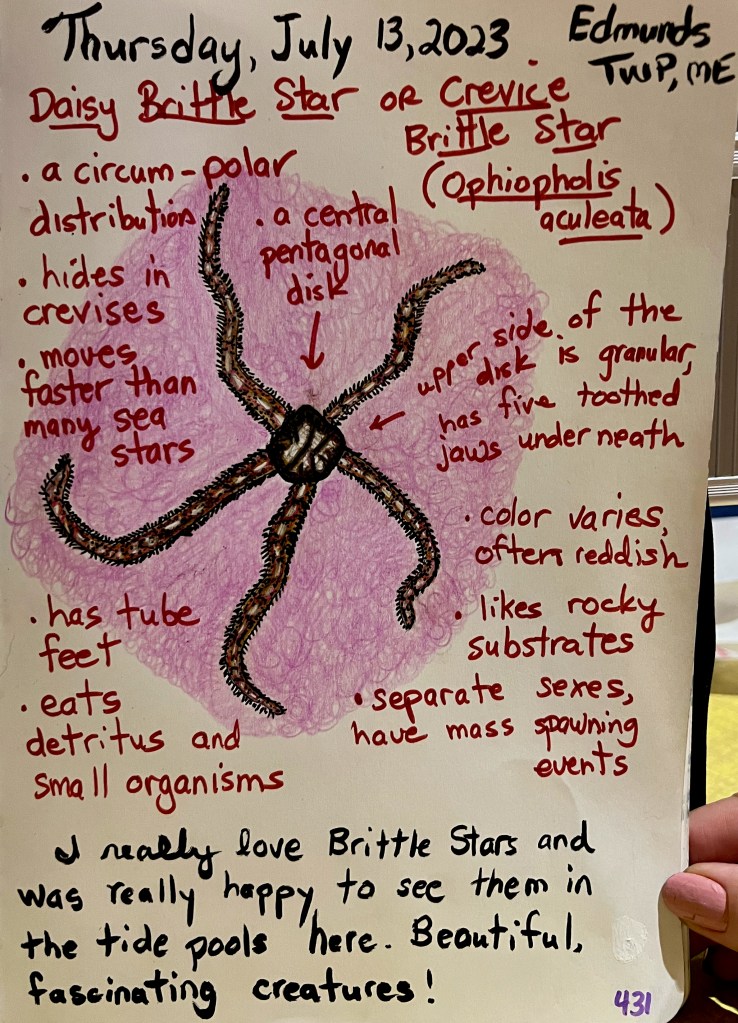 Thursday, July 13, 2023
Edmunds
TWP, ME
Daisy Brittle Star or Crevice
Brittle Star
(Ophiopholis
aculeata)
• a circum-polar
distribution
• hides in
crevises
• moves
faster than
many sea
stars
• a central
pentagonal
disk
upper side of the
disk is granular,
has five toothed
jaws underneath
• color varies,
often reddish
• likes rocky
substrates
• separate sexes,
have mass spawning
events
• has tube
feet
• eats
detritus and
small organisms
I really love Brittle Stars and
was really happy to see them in
the tide pools here. Beautiful,
fascinating creatures!
431